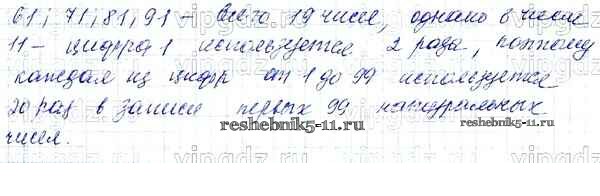 61; 71; 81; 91 – Всего 19 чисел, однако в числе
11 – цифра 1 используется 2 раза, поэтому
каждая из цифр от 1 до 99 используется
20 раз в записи первых 99 натуральных
чисел.
reshebnik5-11.ru
reshebnik5-11.ru